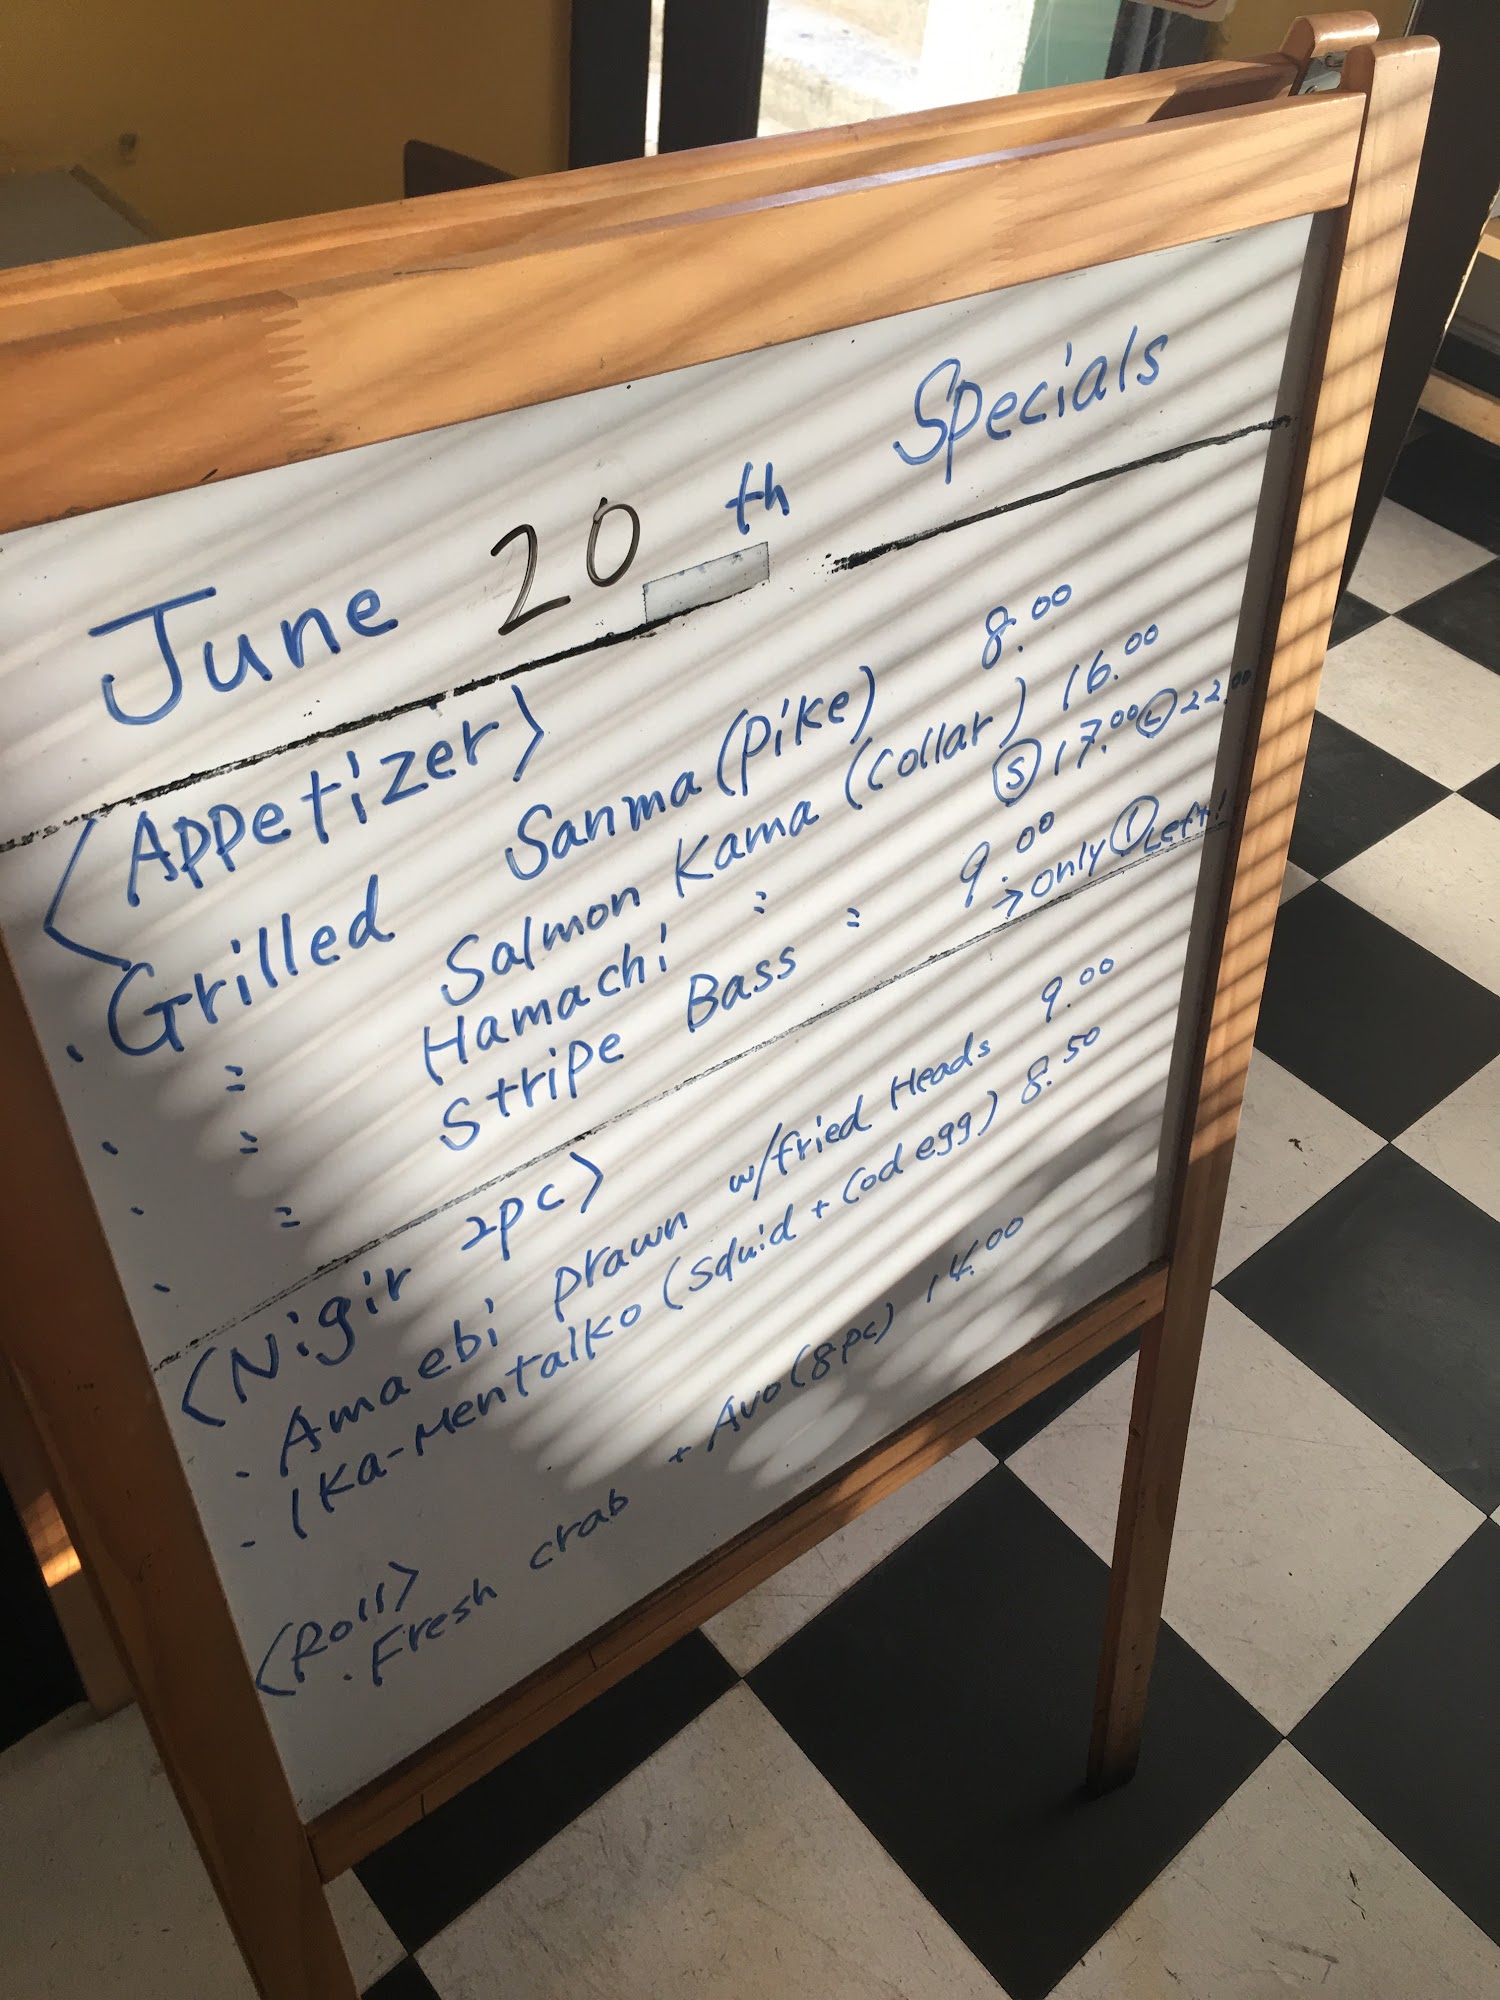 June 20th Specials
<Appetizer>
. Grilled Sanma (Pike) 8.00
. " Salmon Kama (Collar) 16.00
. " Hamachi " Ⓢ 17.00 Ⓛ 22.00
. " Stripe Bass " 9.00
→ only ① Left!
<Nigir 2pc>
. Amaebi prawn w/fried Heads 9.00
. Ika-Mentalko (Squid + Cod egg) 8.50
<Roll>
. Fresh crab + Avo (8pc) 14.00